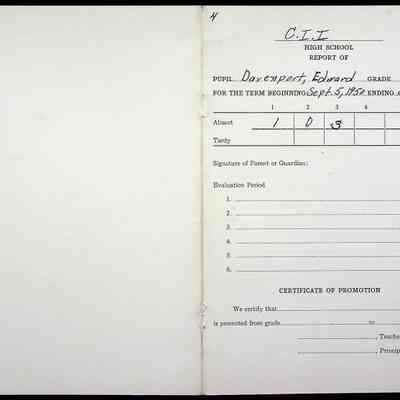 4
C.I.I.
HIGH SCHOOL
REPORT OF
PUPIL Davenport, Edward GRADE
FOR THE TERM BEGINNING Sept. 5, 1950 ENDING
1 2 3 4
Absent 1 0 3
Tardy
Signature of Parent or Guardian:
Evaluation Period
1.
2.
3.
4.
5.
6.
CERTIFICATE OF PROMOTION
We certify that
is promoted from grade to
, Teache
, Princip